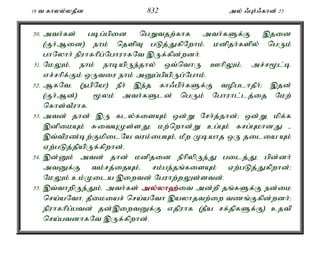 19 வ காலல்லதீன 832 அல் ஃபுர்கான் 25
50. அவர்கள் படிப்பினை பெறுவதற்காக அவர்களுக்கு இதனை
(குர்ஆனை) நாம் தெளிவு படுத்துகிறோம். மனிதர்களில் பெரும்
பாலோர் நிராகரிப்போராகவே இருக்கின்றனர்.
51. மேலும், நாம் நாடியிருந்தால் ஒவ்வொரு ஊரிலும், அச்சமூட்டி
எச்சரிக்கும் ஒருவரை நாம் அனுப்பியிருப்போம்.
52. ஆகவே, (நபியே) நீர் இந்த காஃபிர்களுக்கு வழிபடாதீர்; இதன்
(குர்ஆன்) மூலம் அவர்களுடன் பெரும் போராட்டத்தை மேற்
கொள்வீராக.
53. அவன் தான் இரு கடல்களையும் ஒன்று சேர்த்தான்; ஒன்று, மிக்க
இனிமையும் சுவையுமுள்ளது; மற்றொன்று உப்பும் கசப்புமானது -
இவ்விரண்டிற்குமிடையே வரம்பையும், மீற முடியாத ஒரு தடையை யும்
ஏற்படுத்தியிருக்கிறான்.
54. இன்னும் அவன் தான் மனிதனை நீரிலிருந்து படைத்து, பின்னர்
அவனுக்கு வம்சத்தையும், சம்பந்தங்களையும் ஏற்படுத்துகிறான்;
மேலும் உம்முடைய இறைவன் பேராற்றலுள்ளவன்.
55. இவ்வாறிருந்தும், அவர்கள் அல்லாஹ்வை அன்றி தங்களுக்கு நன்மை
செய்யவோ, தீமையைச் செய்யவோ இயலாதவற்றை வணங்குகின்றனர்;
நிராகரிப்பவன் தன்இறைவனுக்கு எதிராக (தீய சக்திகளுக்கு) உதவி
செய்பவனாகவே இருக்கிறான்.